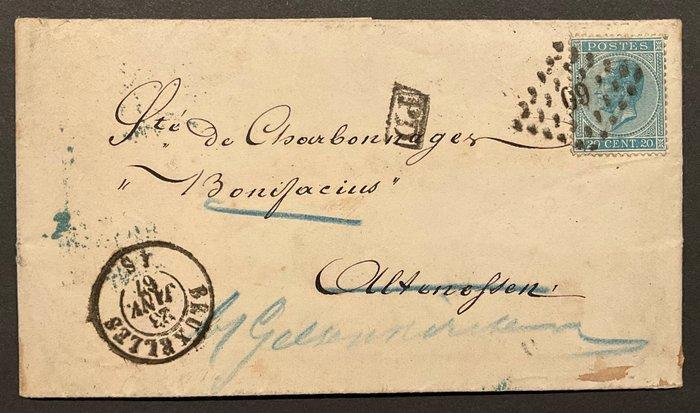 POSTES
20 CENT. 20
60
PD
Sté de Charbonnages
"Bonifacius"
Altenessen.
BRUXELLES
23
JANV
67
4 S
b/ Gelsenkirchen